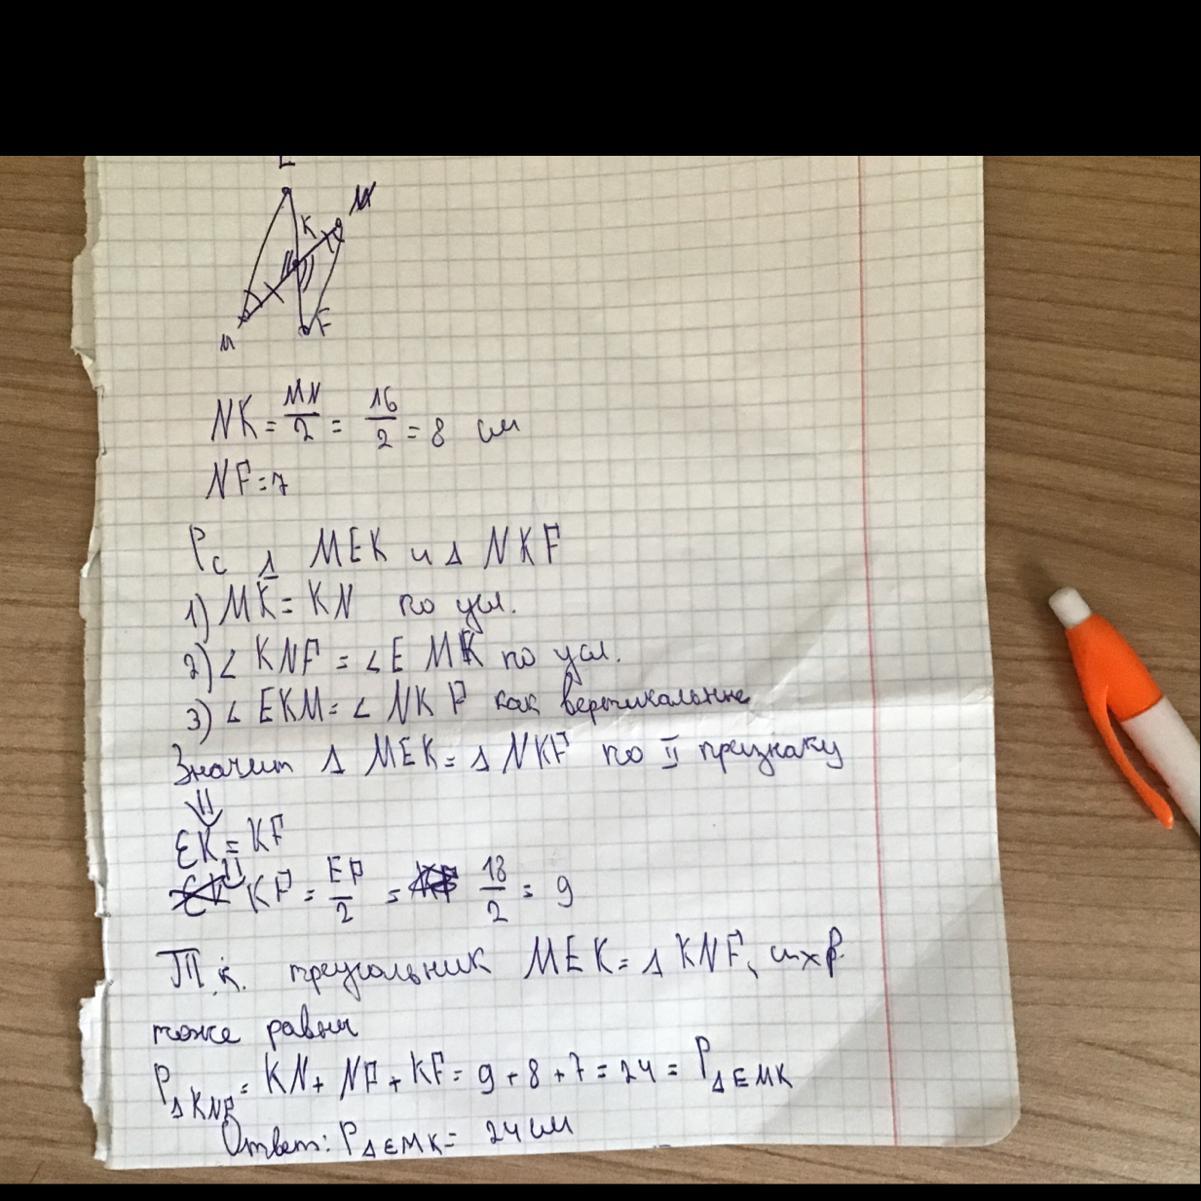 E
N
K
M
F
NK = MN/2 = 16/2 = 8 см
NF = 7
Рс Δ MEK и Δ NKF
1) MK = KN по усл.
2) ∠ KNF = ∠ E MK по усл.
3) ∠ EKM = ∠ NKF как вертикальные
Значит Δ MEK = Δ NKF по II признаку
⇓
EK = KF
KF = EF/2 = 18/2 = 9
Т.к. треугольник MEK = Δ KNF, их P
тоже равны
P Δ KNF = KN + NF + KF = 9 + 8 + 7 = 24 = P Δ EMK
Ответ: P Δ EMK = 24 см